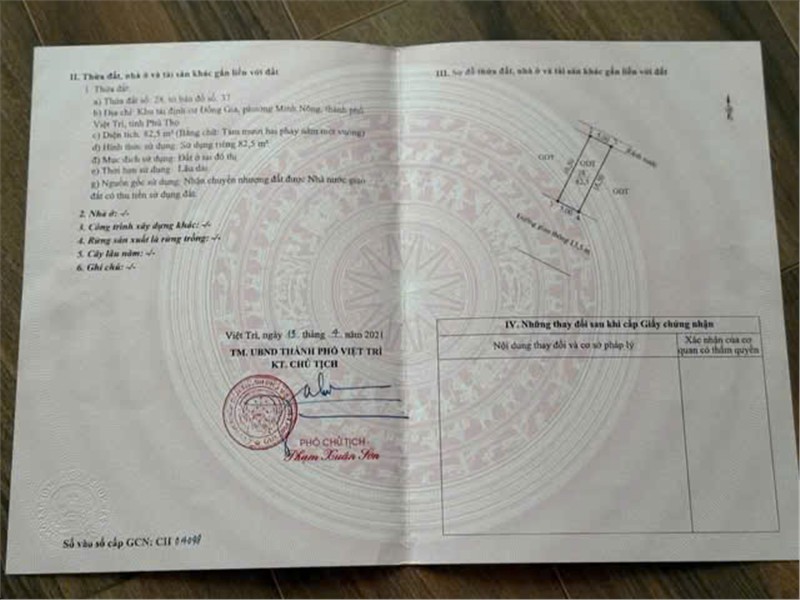 II. Thửa đất, nhà ở và tài sản khác gắn liền với đất
1. Thửa đất:
a) Thửa đất số: 28, tờ bản đồ số: 37
b) Địa chỉ: Khu tái định cư Đồng Gia, phường Minh Nông, thành phố
Việt Trì, tỉnh Phú Thọ
c) Diện tích: 82,5 m² (Bằng chữ: Tám mươi hai phảy năm mét vuông)
d) Hình thức sử dụng: Sử dụng riêng 82,5 m²
đ) Mục đích sử dụng: Đất ở tại đô thị
e) Thời hạn sử dụng: Lâu dài
g) Nguồn gốc sử dụng: Nhận chuyển nhượng đất được Nhà nước giao
đất có thu tiền sử dụng đất.
2. Nhà ở: -/-
3. Công trình xây dựng khác: -/-
4. Rừng sản xuất là rừng trồng: -/-
5. Cây lâu năm: -/-
6. Ghi chú: -/-
Việt Trì, ngày 15 tháng 9 năm 2021
TM. UBND THÀNH PHỐ VIỆT TRÌ
KT. CHỦ TỊCH
PHÓ CHỦ TỊCH
Phạm Xuân Sơn
Số vào sổ cấp GCN: CH
III. Sơ đồ thửa đất, nhà ở và tài sản khác gắn liền với đất
5,00
Rãnh nước
ODT
ODT
28
82,5
ODT
(16,5)
(16,5)
5,00
Đường giao thông 13,5 m
IV. Những thay đổi sau khi cấp Giấy chứng nhận
Nội dung thay đổi và cơ sở pháp lý
Xác nhận của cơ
quan có thẩm quyền